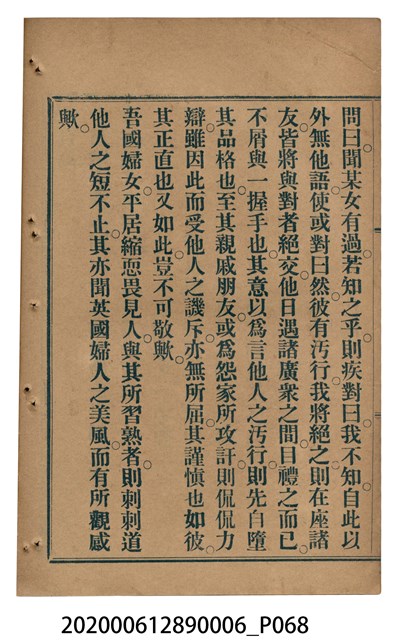 問曰聞某女有過若知之乎則疾對曰我不知自此以
外無他語使或對曰然彼有汚行我將絕之則在座諸
友皆將與對者絕交他日遇諸廣衆之間目禮之而已
不屑與一握手也其意以爲言他人之汚行則先自墮
其品格也至其親戚朋友或爲怨家所攻訐則侃侃力
辯雖因此而受他人之譏斥亦無所屈其謹愼也如彼
其正直也又如此豈不可敬歟
吾國婦女平居縮恧畏見人與其所習熟者則刺刺道
他人之短不止其亦聞英國婦人之美風而有所觀感
歟
202000612890006_P068